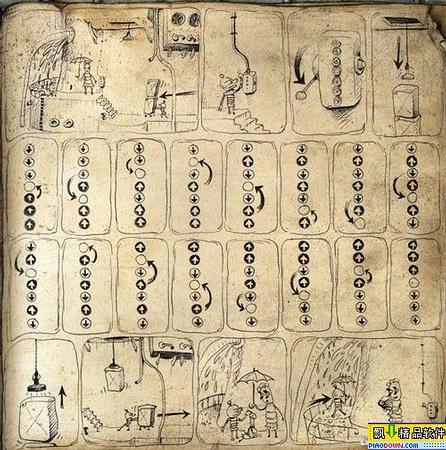 飘 精品软件
PIAODOWN.COM